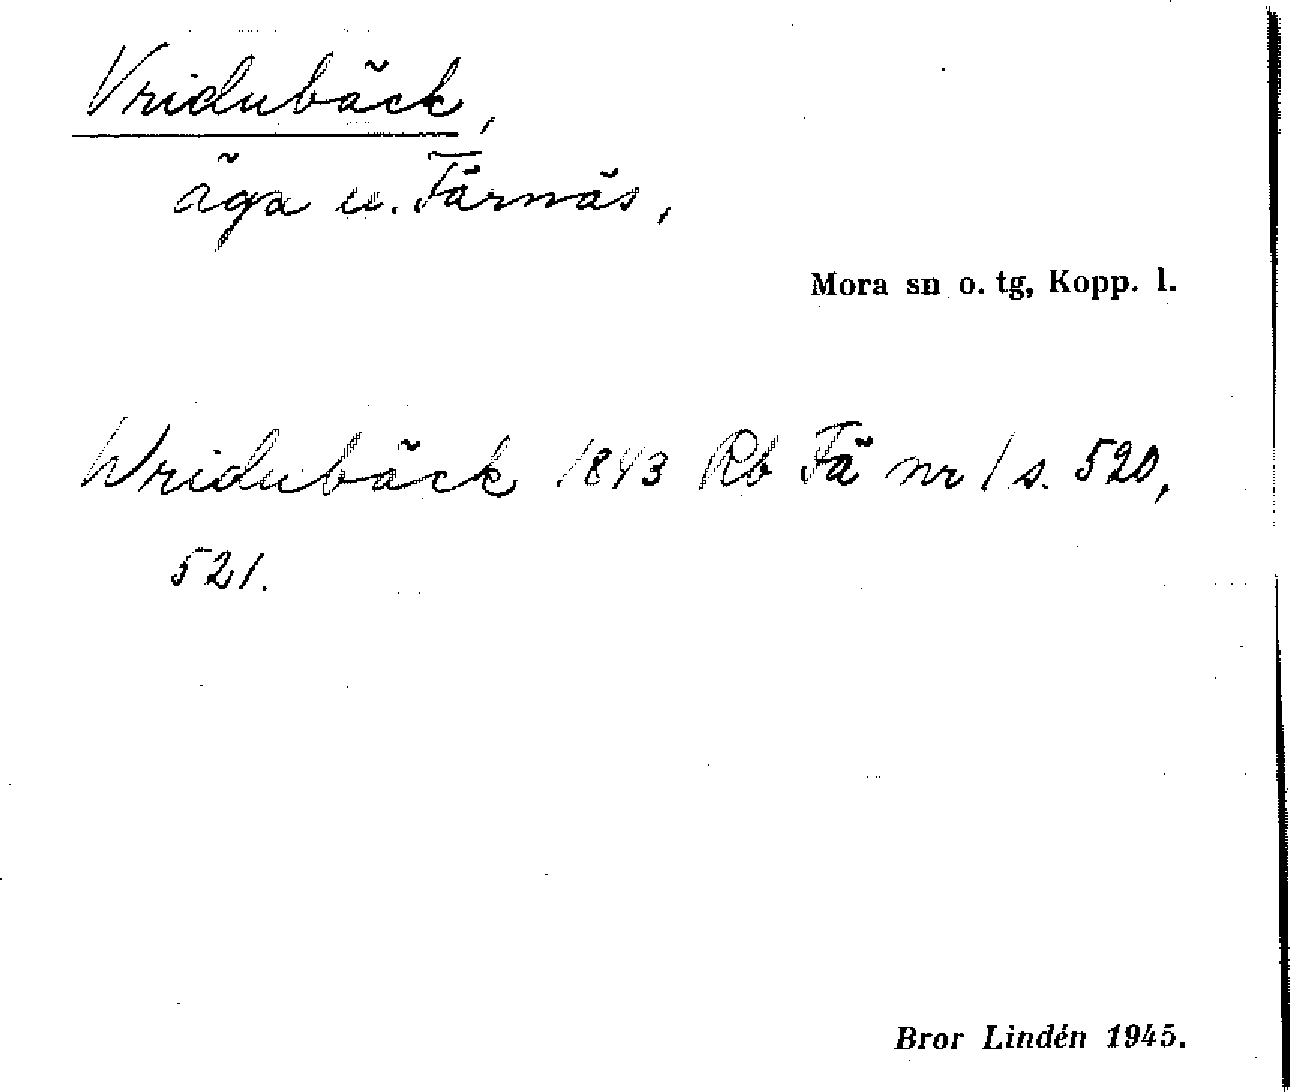 Vridubäck,
äga u. Färnäs,
Mora sn o. tg, Kopp. l.
Wridubäck 1843 Rb Fä nr 1 s. 520,
521.
Bror Lindén 1945.